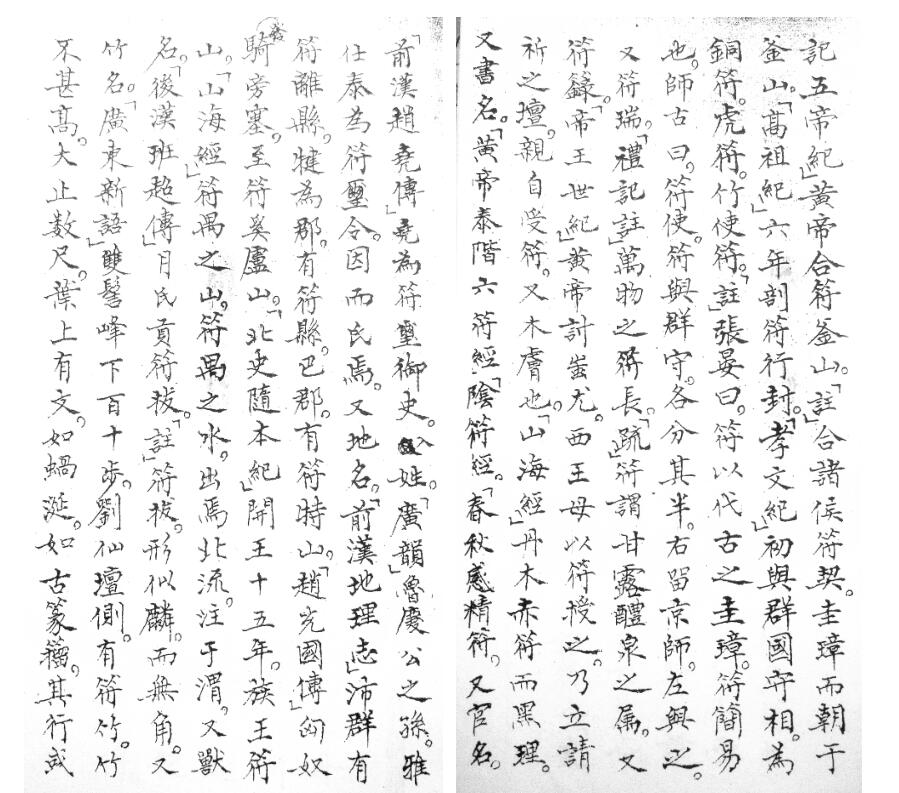 記五帝紀」黃帝合符釜山。「註」合諸侯符契。圭璋而朝于
釜山。「高祖紀」六年剖符行封。「孝文紀」初與群國守相。為
銅符。虎符。竹使符。「註」張晏曰。符以代古之圭璋。符簡易
也。師古曰。符使。符與群守。各分其半。右留京師。左與之。
又符瑞。「禮記註」萬物之符長。「疏」符謂甘露醴泉之属。又
符籙。「帝王世紀」黃帝討蚩尤。西王母以符授之。乃立請
祈之壇。親自受符。又木膚也。「山海經」丹木赤符而黑理。
又書名。「黃帝泰階六符經」「陰符經。「春秋感精符。又官名。
「前漢趙堯傳」堯為符璽御史。又姓。「廣韻」魯慶公之孫。雅
仕泰為符璽令。因而氏焉。又地名。「前漢地理志」沛群有
符離縣。犍為郡。有符縣。巴郡。有符特山。「趙充國傳」匈奴
騎旁塞。至符奚廬山。「北史隨本紀」開王十五年。族王符
山。「山海經」符禺之山。符禺之水。出焉北流。注于渭。又獸
名。「後漢班超傳」月氏貢符拔。「註」符拔。形似麟。而無角。又
竹名。「廣東新語」雙髻峰下百十步。劉仙壇側。有符竹。竹
不甚高。大止数尺。葉上有文。如蝸涎。如古篆籀。其行或